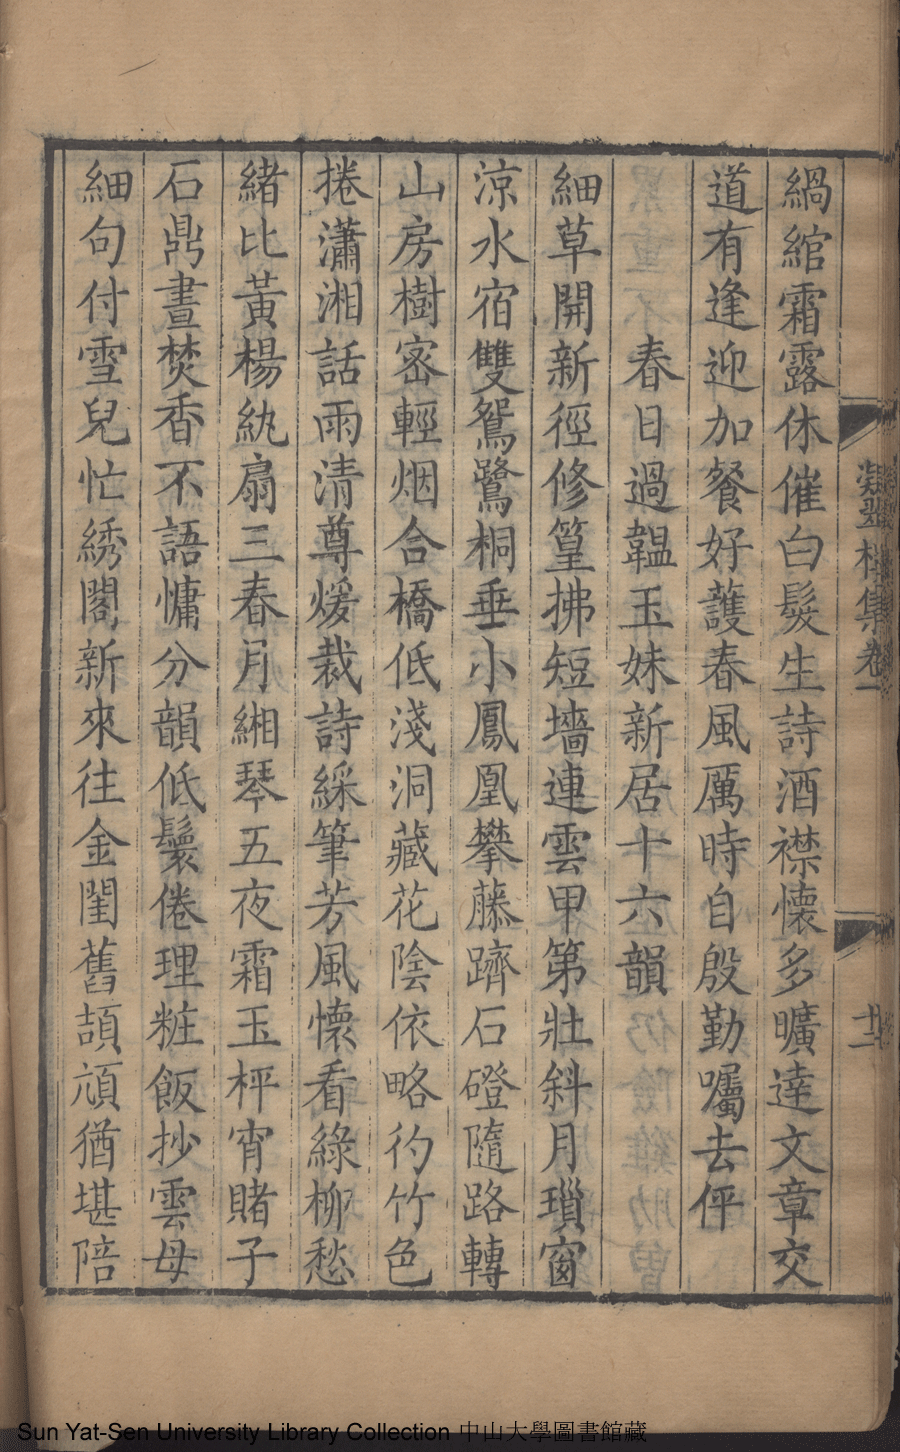 緺綰霜露休催白髮生詩酒襟懷多曠達文章交
道有逢迎加餐好護春風厲時自殷勤囑去伻
春日過韞玉妹新居十六韻
細草開新徑修篁拂短墻連雲甲第壯斜月瑣窗
涼水宿雙鴛鷺桐垂小鳳凰攀藤躋石磴隨路轉
山房樹密輕烟合橋低淺洞藏花陰依略彴竹色
捲瀟湘話雨清尊煖裁詩綵筆芳風懷看綠柳愁
緒比黃楊紈扇三春月緗琴五夜霜玉枰宵賭子
石鼎晝焚香不語慵分韻低鬟倦理粧飯抄雲母
細句付雪兒忙綉閣新來往金閨舊頡頏猶堪陪
凝翠樓集卷一
十二
Sun Yat-Sen University Library Collection 中山大學圖書館藏